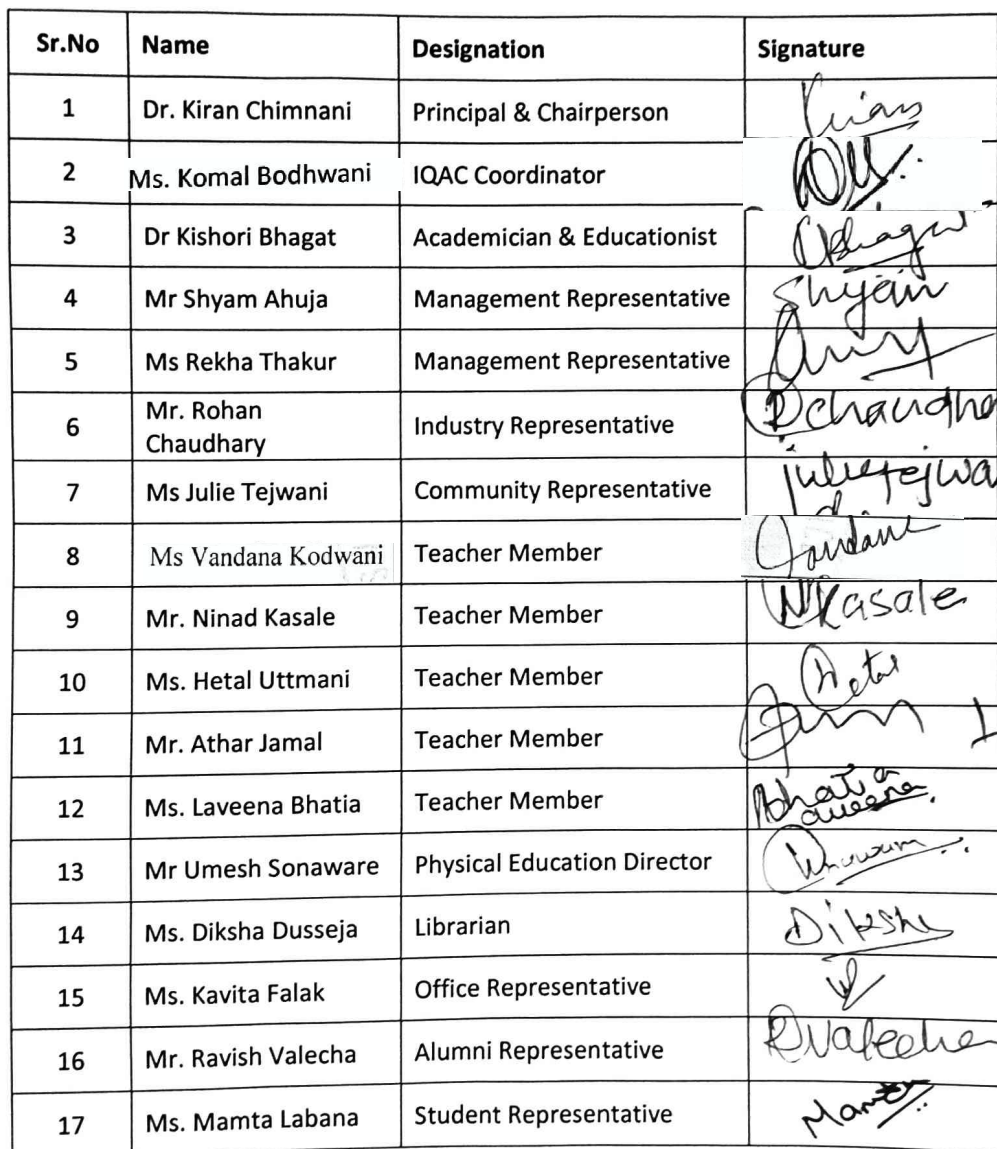 Sr.No Name Designation Signature
1 Dr. Kiran Chimnani Principal & Chairperson Kiran
2 Ms. Komal Bodhwani IQAC Coordinator
3 Dr Kishori Bhagat Academician & Educationist KBhagat
4 Mr Shyam Ahuja Management Representative Shyam
5 Ms Rekha Thakur Management Representative
6 Mr. Rohan
Chaudhary Industry Representative Rchaudha
7 Ms Julie Tejwani Community Representative julietejwa
8 Ms Vandana Kodwani Teacher Member Vandana
9 Mr. Ninad Kasale Teacher Member NKasale
10 Ms. Hetal Uttmani Teacher Member Hetal
11 Mr. Athar Jamal Teacher Member
12 Ms. Laveena Bhatia Teacher Member Bhatia
Laveena
13 Mr Umesh Sonaware Physical Education Director
14 Ms. Diksha Dusseja Librarian Diksha
15 Ms. Kavita Falak Office Representative
16 Mr. Ravish Valecha Alumni Representative RValecha
17 Ms. Mamta Labana Student Representative Mamta